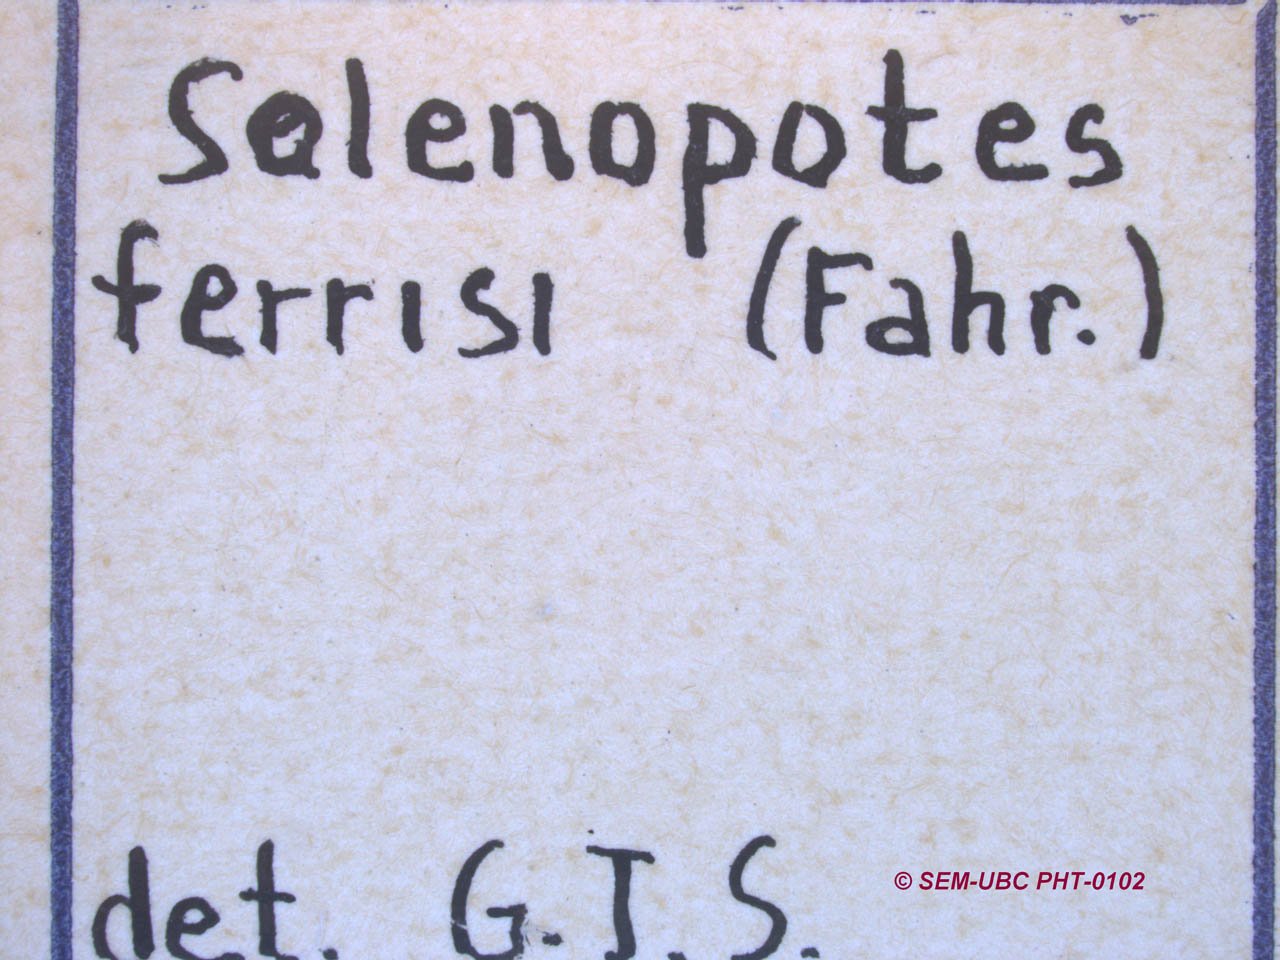 Solenopotes
ferrisi (Fahr.)
det. G.J.S.
© SEM-UBC PHT-0102